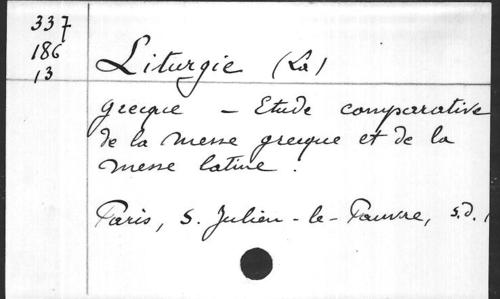 337
186
13
Liturgie (La)
grecque – Etude comparative
de la messe grecque et de la
messe latine.
Paris, S. Julien-le-Pauvre, s.d.,